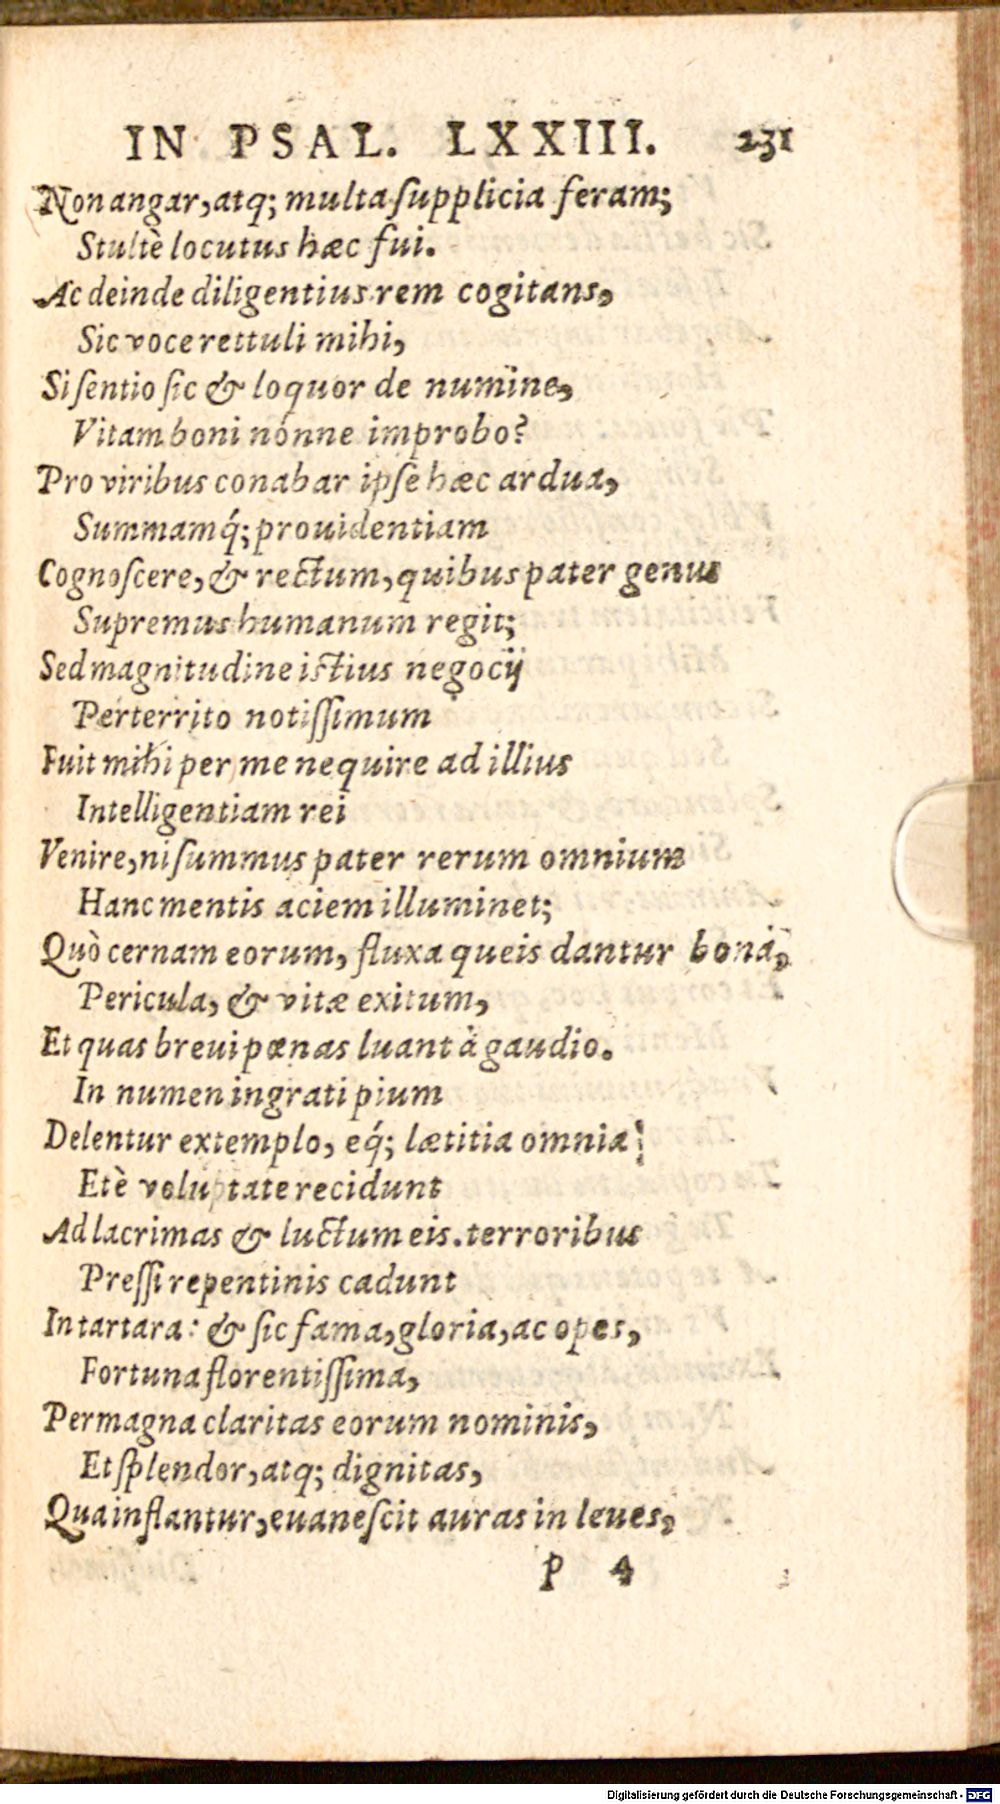 IN PSAL. LXXIII. 231
Non angar, atq; multa ſupplicia feram;
Stultè locutus hæc fui.
Ac deinde diligentius rem cogitans,
Sic voce rettuli mihi,
Si ſentio ſic & loquor de numine,
Vitam boni nónne improbo?
Pro viribus conabar ipſe hæc ardua,
Summamq́; prouidentiam
Cognoſcere, & rectum, quibus pater genus
Supremus humanum regit;
Sed magnitudine iſtius negocij
Perterrito notiſſimum
Fuit mihi per me nequire ad illius
Intelligentiam rei
Venire, ni ſummus pater rerum omnium
Hanc mentis aciem illuminet;
Quò cernam eorum, fluxa queis dantur bona,
Pericula, & vitæ exitum,
Et quas breui pœnas luant à gaudio.
In numen ingrati pium
Delentur extemplo, eq́; lætitia omnia
Et è voluptate recidunt
Ad lacrimas & luctum eis. terroribus
Preſſi repentinis cadunt
In tartara: & ſic fama, gloria, ac opes,
Fortuna florentiſſima,
Permagna claritas eorum nominis,
Et ſplendor, atq; dignitas,
Qua inflantur, euaneſcit auras in leues,
P 4
Digitalisierung gefördert durch die Deutsche Forschungsgemeinschaft - DFG